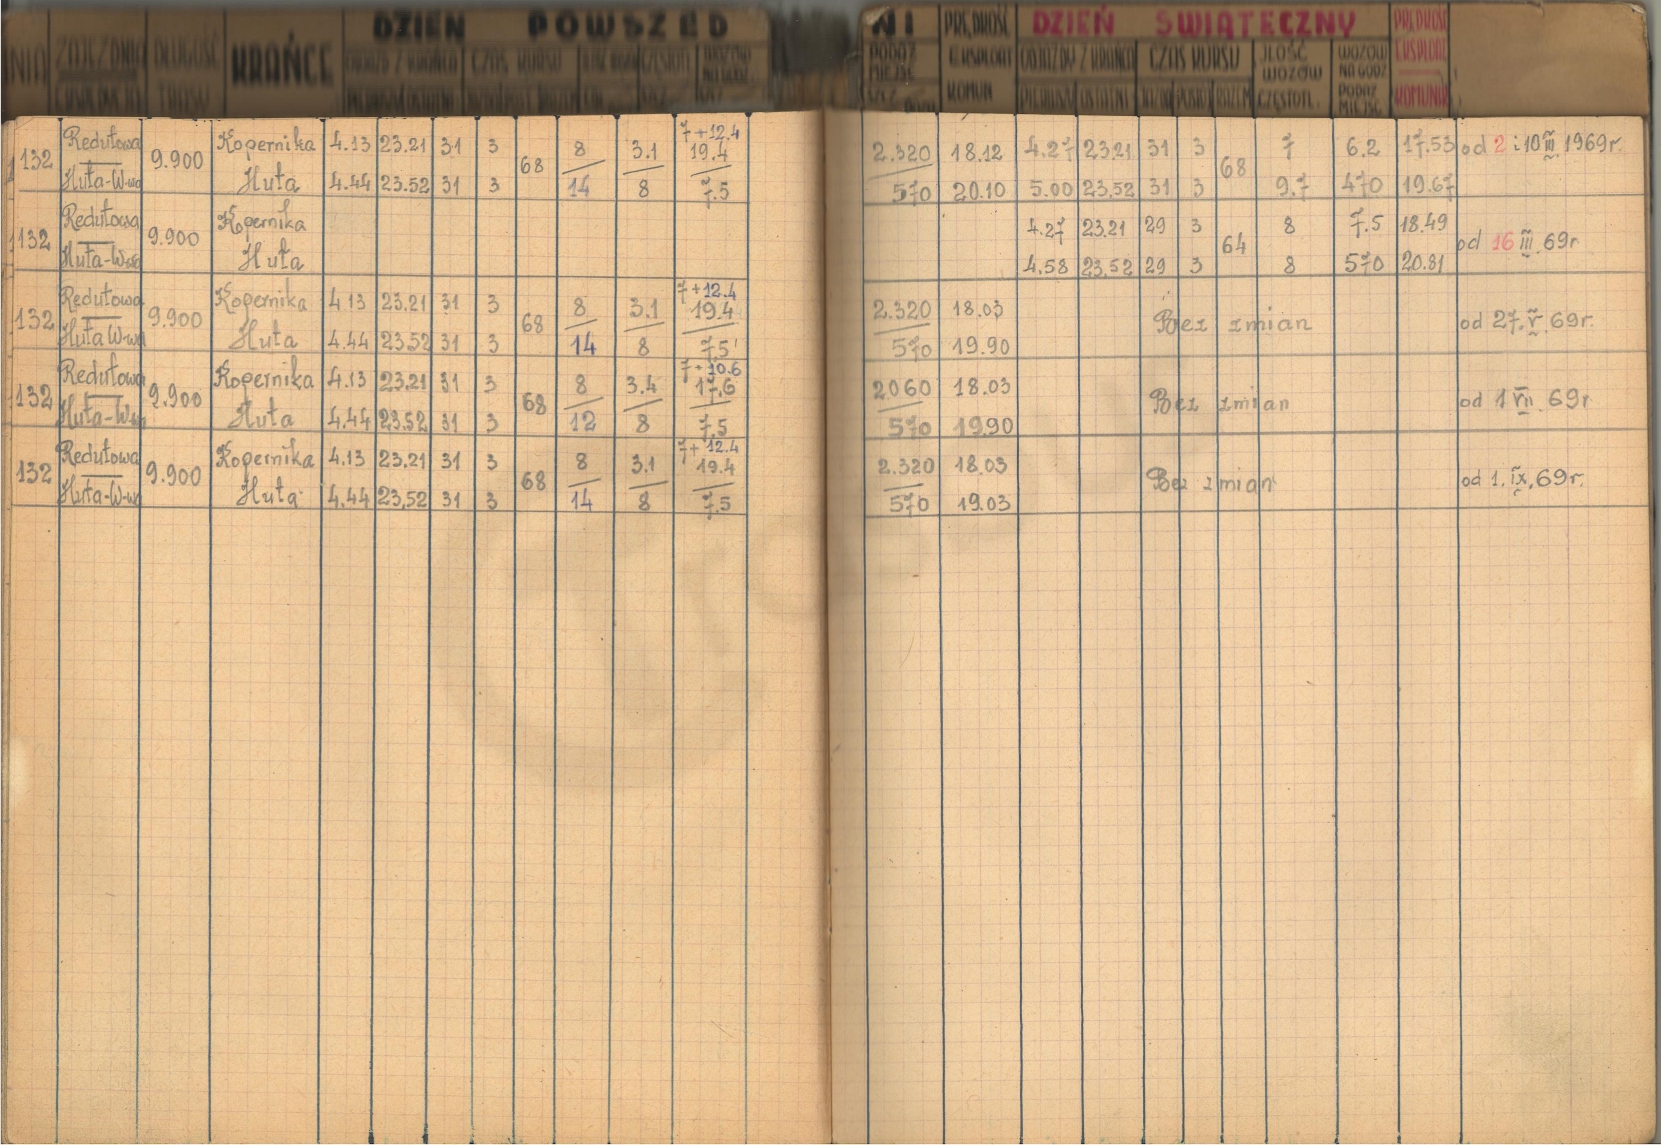 DZIEŃ POWSZED NI DZIEŃ ŚWIĄTECZNY
ZAJEZDNIA DŁUGOŚĆ TRASY KRAŃCE ODJAZD Z KRAŃCA CZAS KURSU
PODAŻ MIEJSC PRĘDKOŚĆ EKSPLOAT KOMUN ODJAZDY Z KRAŃCA CZAS KURSU JLOŚĆ WOZÓW CZĘSTOTL. WOZÓW NA GODZ PODAŻ MIEJSC PRĘDKOŚĆ EKSPLOAT KOMUNIK
7+12.4
132 Redutowa 9.900 Kopernika 4.13 23.21 31 3 68 8 3.1 19.4 2.320 18.12 4.27 23.21 31 3 68 7 6.2 17.53 od 2 i 10 III 1969r.
Huta-W-wa Huta 4.44 23.52 31 3 14 8 7.5 570 20.10 5.00 23.52 31 3 9.7 470 19.67
132 Redutowa 9.900 Kopernika 4.27 23.21 29 3 64 8 7.5 18.49 od 16 III 69r
Huta-W-wa Huta 4.58 23.52 29 3 8 570 20.81
7+12.4
132 Redutowa 9.900 Kopernika 4.13 23.21 31 3 68 8 3.1 19.4 2.320 18.03 Bez zmian od 27. V. 69r.
Huta W-wa Huta 4.44 23.52 31 3 14 8 7.5 570 19.90
7+10.6
132 Redutowa 9.900 Kopernika 4.13 23.21 31 3 68 8 3.4 17.6 2060 18.03 Bez zmian od 1 VII. 69r
Huta-W-wa Huta 4.44 23.52 31 3 12 8 7.5 570 19.90
7+12.4
132 Redutowa 9.900 Kopernika 4.13 23.21 31 3 68 8 3.1 19.4 2.320 18.03 Bez zmian od 1. IX. 69r.
Huta-W-wa Huta 4.44 23.52 31 3 14 8 7.5 570 19.03